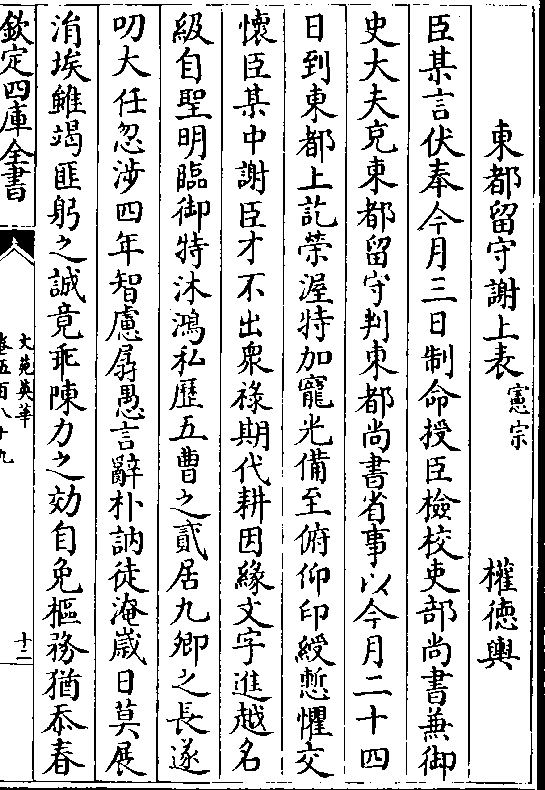 東都留守謝上表憲宗 權德輿
臣某言伏奉今月三日制命授臣檢校吏部尚書兼御
史大夫充東都留守判東都尚書省事以今月二十四
日到東都上訖榮渥特加寵光備至俯仰印綬慙懼交
懷臣某中謝臣才不出衆祿期代耕因緣文字進越名
級自聖明臨御特沐鴻私歷五曹之貳居九卿之長遂
叨大任忽涉四年智慮孱愚言辭朴訥徒淹歳日莫展
涓埃雖竭匪躬之誠竟乖陳力之効自免樞務猶忝春
欽定四庫全書
文苑英華
卷五百八十九
十二